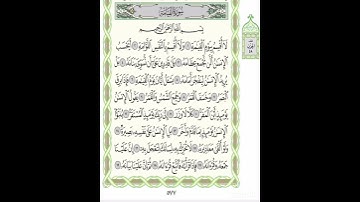 سورة القيامة
بسم الله الرحمن الرحيم
لا أقسم بيوم القيمة ولا أقسم بالنفس اللوامة أيحسب
الإنسن ألن نجمع عظامه بلى قدرين على أن نسوي بنانه بل
يريد الإنسن ليفجر أمامه يسل أيان يوم القيمة فإذا برق
البصر وخسف القمر وجمع الشمس والقمر يقول الإنسن
يومئذ أين المفر كلا لا وزر إلى ربك يومئذ المستقر ينبؤا
الإنسن يومئذ بما قدم وأخر بل الإنسن على نفسه بصيرة
ولو ألقى معاذيره لا تحرك به لسانك لتعجل به إن علينا
جمعه وقرءانه فإذا قرأنه فاتبع قرءانه ثم إن علينا بيانه